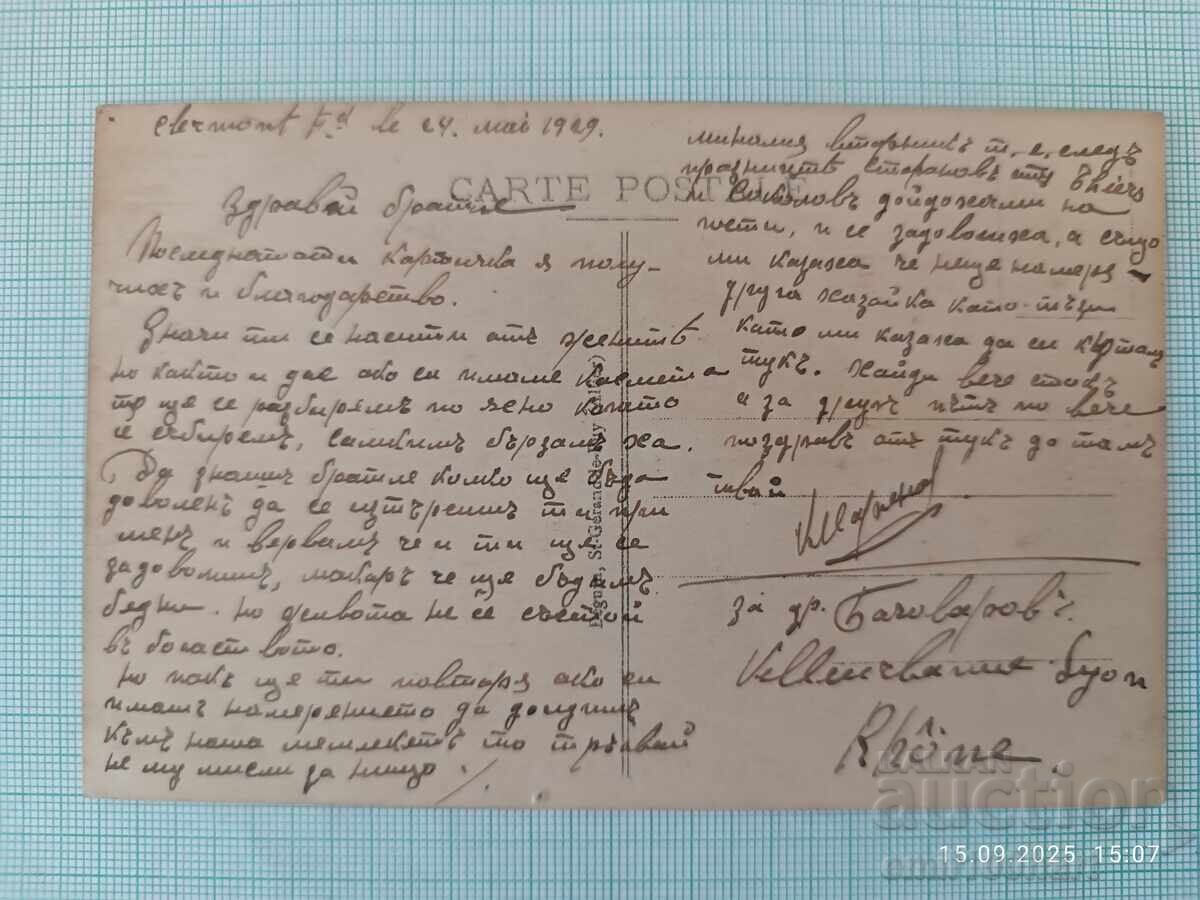 Clermont Fd le 24. май 1929.
CARTE POSTALE
Здравей братле
Последнатати картичка я полу-
чихъ и благодарство.
Значи ти се насити отъ женитѣ
но както и да е ако си имаме късмета
то ще се разбиремъ по ясно когато
се събиремъ,
Да знаишъ братле колко ще бъда
доволенъ да се изтърсишъ ти при
менъ и вервамъ че и ти ще се
задоволишъ, макаръ че ще бъдемъ
бедни. но делвота не се състой
въ богаството.
Но пакъ ще ти повторя ако си
имашъ намерението да дойдишъ
къмъ наша мемлекетъ то тръгвай
не му мисли за нищо.
миналия вторникъ т. е. следъ
празницитѣ
и Соколовъ дойдоха ми на
гости, и се задоволиха, а също
ми казаха че
друга хазайка като
като ми казаха да си
тукъ. Хайди вече стигъ
а за другъ пътъ по вече
поздравъ отъ тукъ до тамъ
твой
за др. Бачоваровъ.
Villeurbanne Lyon
Rhône.
St-Gérand-de-Puy (Allier)
BALKAN
auction
15.09.2025 15:07